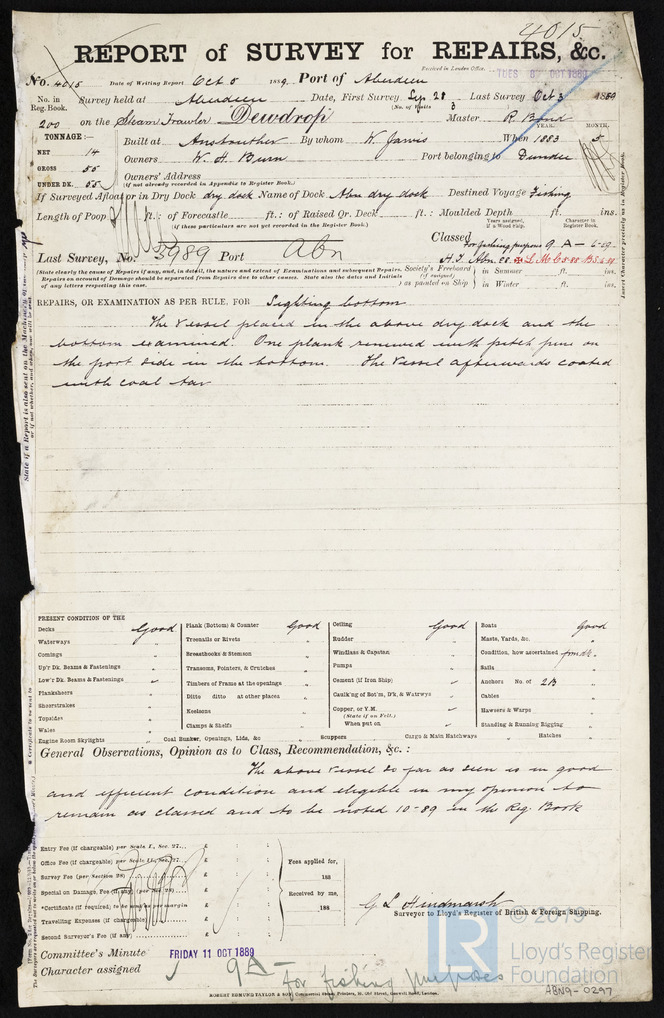 4015
REPORT of SURVEY for REPAIRS, &c.
Received in London Office,
TUES 8 OCT 1889
No. 4015 Date of Writing Report Oct 5 1889. Port of Aberdeen
No. in Reg. Book. Survey held at Aberdeen Date, First Survey Sep 28 Last Survey Oct 3 1889
(No. of Visits 3
200 on the Steam Trawler Dewdrop Master R Bond
TONNAGE:— YEAR. MONTH.
NET 14 Built at Anstruther By whom W. Jarvis When 1883 5
GROSS 55 Owners W. H. Burn Port belonging to Dundee
UNDER DK. 55 Owners' Address
(if not already recorded in Appendix to Register Book.)
If Surveyed Afloat or in Dry Dock dry dock Name of Dock Abn dry dock Destined Voyage Fishing
Length of Poop ft.: of Forecastle ft.: of Raised Qr. Deck ft.: Moulded Depth ft. ins.
(if these particulars are not yet recorded in the Register Book.)
Years assigned, if a Wood Ship. Character in Register Book.
Last Survey, No. 3989 Port Abn
Classed For fishing purposes 9 A
(State clearly the name of Repairs if any, and, in detail, the nature and extent of Examinations and subsequent Repairs. Repairs on account of Damage should be separated from Repairs due to other causes. State also the dates and Initials of any letters respecting this case.
Society's Freeboard (if assigned) as painted on Ship { in Summer ft. ins.
in Winter ft. ins.
REPAIRS, OR EXAMINATION AS PER RULE, FOR Sighting bottom
The vessel placed in the above dry dock and the
bottom examined. One plank renewed with pitch pine on
the port side in the bottom. The Vessel afterwards coated
with coal tar
PRESENT CONDITION OF THE
Decks Good
Waterways "
Comings "
Up'r Dk. Beams & Fastenings "
Low'r Dk. Beams & Fastenings "
Planksheers "
Sheerstrakes "
Topsides "
Wales "
Engine Room Skylights "
Plank (Bottom) & Counter Good
Treenails or Rivets "
Breasthooks & Stemson "
Transoms, Pointers, & Crutches "
Timbers of Frame at the openings "
Ditto ditto at other places "
Keelsons "
Clamps & Shelfs "
Coal Bunker, Openings, Lids, &c "
Ceiling Good
Rudder "
Windlass & Capstan "
Pumps "
Cement (if Iron Ship) "
Caulk'ng of Bot'm, D'k, & Watrwys "
Copper, or Y.M. "
(State if on Felt.)
When put on "
Scuppers "
Boats good
Masts, Yards, &c. "
Condition, how ascertained from dk "
Sails "
Anchors No. of 2B
Cables "
Hawsers & Warps "
Standing & Running Rigging "
Cargo & Main Hatchways " Hatches "
General Observations, Opinion as to Class, Recommendation, &c. :
The above Vessel so far as seen is in good
and efficient condition and eligible in my opinion to
remain as classed and to be noted 10-89 in the Reg. Book
Entry Fee (if chargeable) per Scale I., Sec. 27... £ : :
Office Fee (if chargeable) per Scale II., Sec. 27... £ : :
Survey Fee (per Section 28) £ : :
Special on Damage, Fee (if any) (per Sec. 28) £ : :
*Certificate (if required) to be sent as per margin £ : :
Travelling Expenses (if chargeable) £ : :
Second Surveyor's Fee (if any) £ : :
Fees applied for,
188
Received by me,
188
G L Hindmarsh
Surveyor to Lloyd's Register of British & Foreign Shipping.
Committee's Minute FRIDAY 11 OCT 1889
Character assigned 9 A
for fishing purposes
ROBERT EDMUND TAYLOR & SON
© 2019
LR
Lloyd's Register
Foundation
ABN9-0297